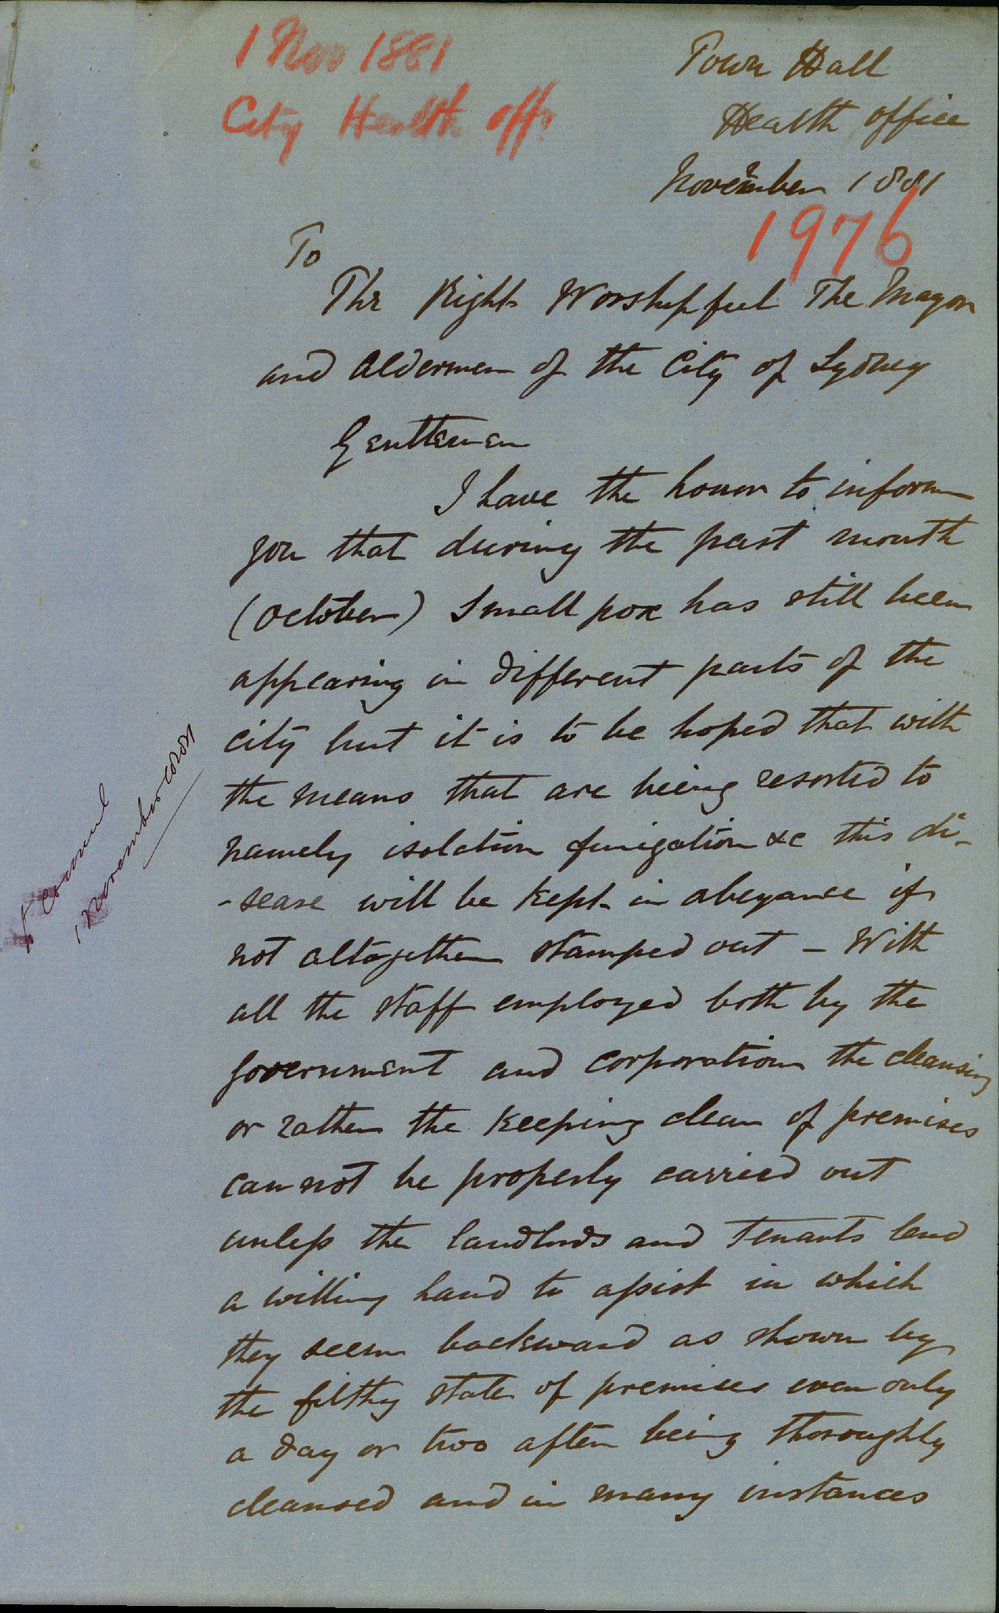 1 Nov 1881
City Health Off.
Town Hall
Health office
November 1881
1976
To
The Right Worshipfull The Mayor
and Aldermen of the City of Sydney
Gentlemen
I have the honor to inform
you that during the past month
(October) Small pox has still been
appearing in different parts of the
City but it is to be hoped that with
the means that are being resorted to
namely isolation fumigation &c this di-
-sease will be kept in abeyance if
not altogether stamped out - With
all the staff employed both by the
Government and Corporation the cleansing
or rather the keeping clean of premises
cannot be properly carried out
unless the landlords and tenants lend
a willing hand to assist in which
they seem backward as shown by
the filthy state of premises even only
a day or two after being thoroughly
cleansed and in many instances
Council
November 1881